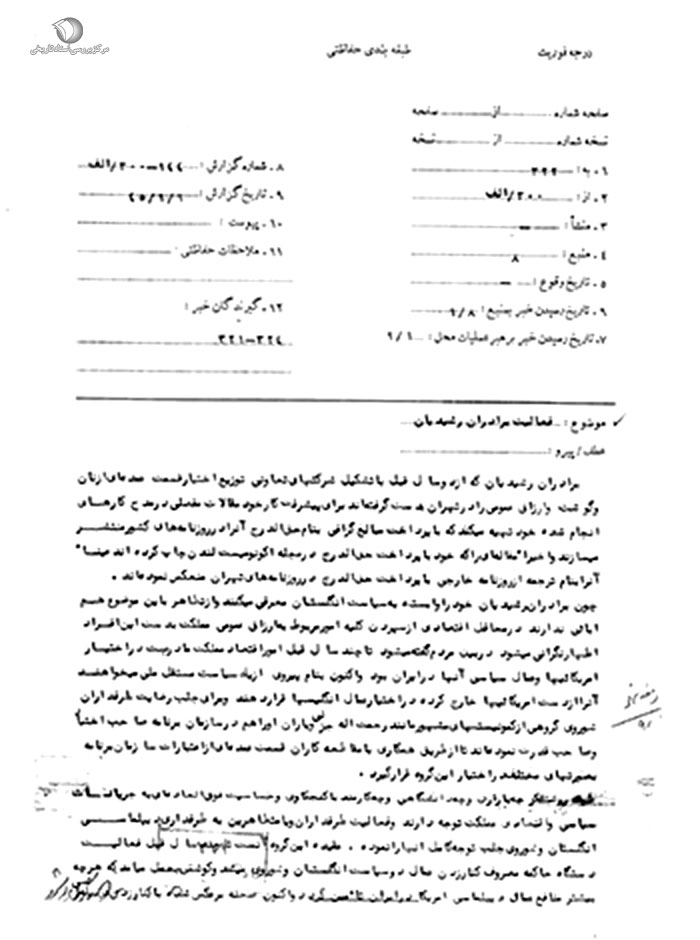 مرکز بررسی اسناد تاریخی
درجه فوریت
طبقه بندی حفاظتی
صفحه شماره ............ از ............ صفحه
نسخه شماره ............ از ............ نسخه
۱ـ به : ۳۲۲
۲ـ از : ۳۰۰/الف
۳ـ منشأ : ـ
۴ـ منبع : ۸
۵ـ تاریخ وقوع : ـ
۶ـ تاریخ رسیدن خبر بمنبع : ۹/۸
۷ـ تاریخ رسیدن خبر برهبر عملیات محل :
۸ـ شماره گزارش : ۳۰۰/الف
۹ـ تاریخ گزارش :
۱۰ـ پیوست :
۱۱ـ ملاحظات حفاظتی :
۱۲ـ گیرندگان خبر :
۳۲۱ـ۳۲۴
موضوع : فعالیت برادران رشیدیان
عطف / پیرو :
برادران رشیدیان که از دو سال قبل با تشکیل شرکتهای تعاونی توزیع اختیار قسمت عمده‌ای از نان
و گوشت و ارزاق عمومی را در تهران بدست گرفته‌اند برای پیشرفت کار خود مقالات مفصلی در مدح کارهای
انجام شده خود تهیه میکنند که با پرداخت مبالغ گزافی بنام حق الدرج آنرا در روزنامه‌های کشور منتشر
میسازند و اخیرا مقاله‌ای را که خود با پرداخت حق الدرج در مجله اکونومیست لندن چاپ کرده اند عینا"
آنرا بنام ترجمه از روزنامه خارجی با پرداخت حق الدرج در روزنامه‌های تهران منعکس نموده‌اند .
چون برادران رشیدیان خود را وابسته به سیاست انگلستان معرفی میکنند و از تظاهر باین موضوع هم
ابائی ندارند در محافل اقتصادی از سپردن کلیه امور مربوط به ارزاق عمومی مملکت بدست این افراد
اظهار نگرانی میشود و در بین مردم گفته میشود تا چند سال قبل امور اقتصاد مملکت ما دربست در اختیار
امریکائیها و عمال سیاسی آنها در ایران بود و اکنون بنام پیروی از یک سیاست مستقل ملی میخواهند
آنرا از دست امریکائیها خارج کرده در اختیار عمال انگلیسیها قرار دهند و برای جلب رضایت طرفداران
شوروی گروهی از کمونیستهای مشهور مانند رحمت اله جزنی و یاران او را هم در سازمان برنامه صاحب اختیار
و صاحب قدرت نموده‌اند تا از طریق همکاری با مقاطعه کاران قسمت عمده‌ای از اعتبارات سازمان برنامه
بصورتهای مختلف در اختیار این گروه قرار گیرد .
طبقه روشنفکر چه بازاری و چه دانشگاهی و چه کارمند با کنجکاوی و حساسیت فوق العاده‌ای به جریانات
سیاسی و اقتصادی مملکت توجه دارند و فعالیت طرفداران و یا متظاهرین به طرفداری دیپلماسی
انگلستان و شوروی جلب توجه کامل آنها را نموده . عقیده این گروه سال قبل فعالیت
دستگاه حاکمه مصروف کنار زدن عمال دو سیاست انگلستان و شوروی میشد و کوشش بعمل میامد که هرچه
بیشتر منافع عمال دیپلماسی امریکا در ایران تامین گردد و اکنون صحنه برعکس شده با کنار زدن